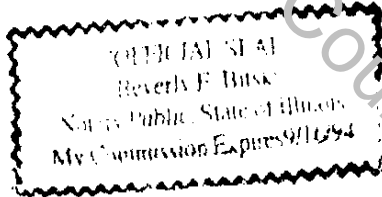 "OFFICIAL SEAL"
Beverly F.
Notary Public, State of Illinois
My Commission Expires
Cou